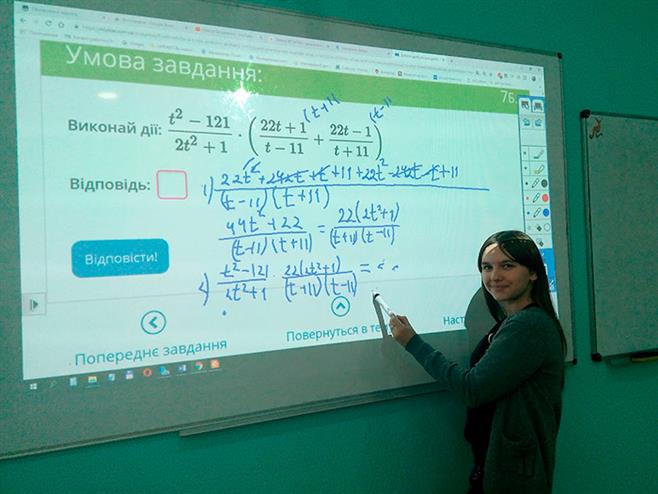 Умова завдання:
76.
(t+11) (t-11)
Виконай дії: \frac{t^2 - 121}{2t^2 + 1} \cdot \left( \frac{22t + 1}{t - 11} + \frac{22t - 1}{t + 11} \right)
Відповідь:
1) \frac{22t^2+242t+t+11+22t^2-242t-t+11}{(t-11)(t+11)}
\frac{44t^2+22}{(t-11)(t+11)} = \frac{22(2t^2+1)}{(t+11)(t-11)}
Відповісти!
2) \frac{t^2-121}{2t^2+1} \cdot \frac{22(2t^2+1)}{(t+11)(t-11)} =
Попереднє завдання
Повернуться в те
Наст